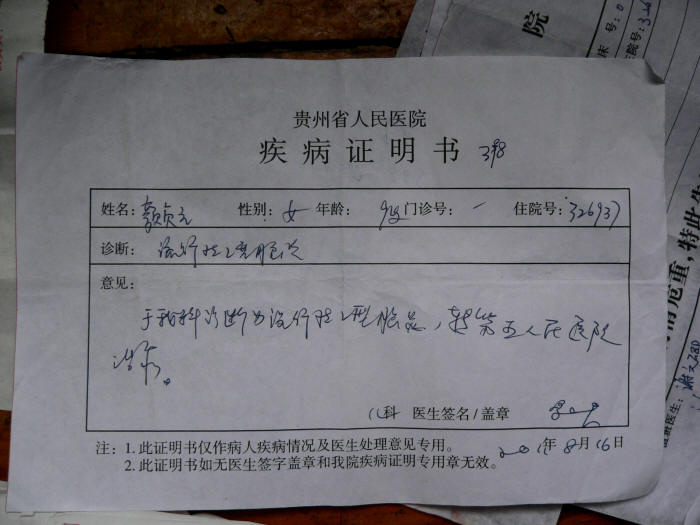 贵州省人民医院
疾病证明书
姓名： 性别：女 年龄： 门诊号：一 住院号：326937
诊断：流行性乙型脑炎
意见：
于我科诊断为流行性乙型脑炎，转第五人民医院
治疗。
儿科 医生签名/盖章
注：1.此证明书仅作病人疾病情况及医生处理意见专用。
年8月16日
2.此证明书如无医生签字盖章和我院疾病证明专用章无效。
院
床号：
住院号：326
情危重，特此
医生：